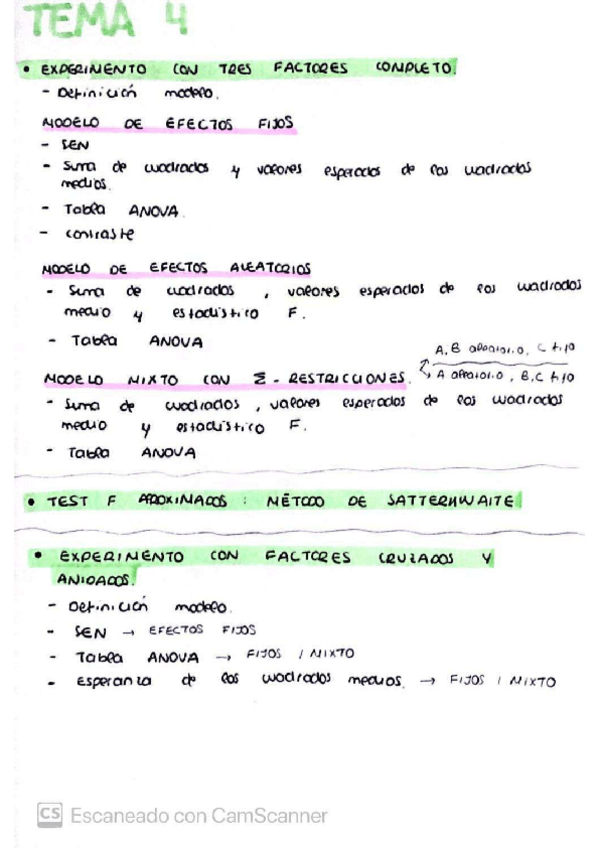 TEMA 4
• EXPERIMENTO CON TRES FACTORES COMPLETO.
- Definición modelo.
MODELO DE EFECTOS FIJOS
- SEN
- Suma de cuadrados y valores esperados de los cuadrados
medios.
- Tabla ANOVA.
- contraste
MODELO DE EFECTOS ALEATORIOS
- Suma de cuadrados, valores esperados de los cuadrados
medio y estadístico F.
- Tabla ANOVA
A, B aleatorio, C fijo
MODELO MIXTO CON Σ - RESTRICCIONES. A aleatorio, B, C fijo
- Suma de cuadrados, valores esperados de los cuadrados
medio y estadístico F.
- Tabla ANOVA
• TEST F APROXIMADOS: MÉTODO DE SATTERHWAITE
• EXPERIMENTO CON FACTORES CRUZADOS Y
ANIDADOS.
- Definición modelo.
- SEN → EFECTOS FIJOS
- Tabla ANOVA → FIJOS / MIXTO
- Esperanza de los cuadrados medios. → FIJOS / MIXTO
CS Escaneado con CamScanner